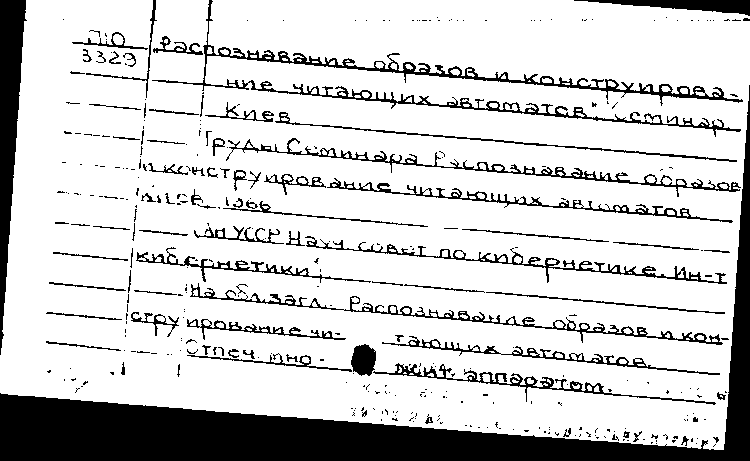 П10
3329
„Распознавание образов и конструирова-
ние читающих автоматов", семинар.
Киев.
Труды Семинара Распознавание образов
и конструирование читающих автоматов
1966
АН УССР Научн совет по кибернетике. Ин-т
кибернетики
На обл. загл.: Распознавание образов и кон-
струирование чи- тающих автоматов.
Отпеч. мно- жит. аппаратом.